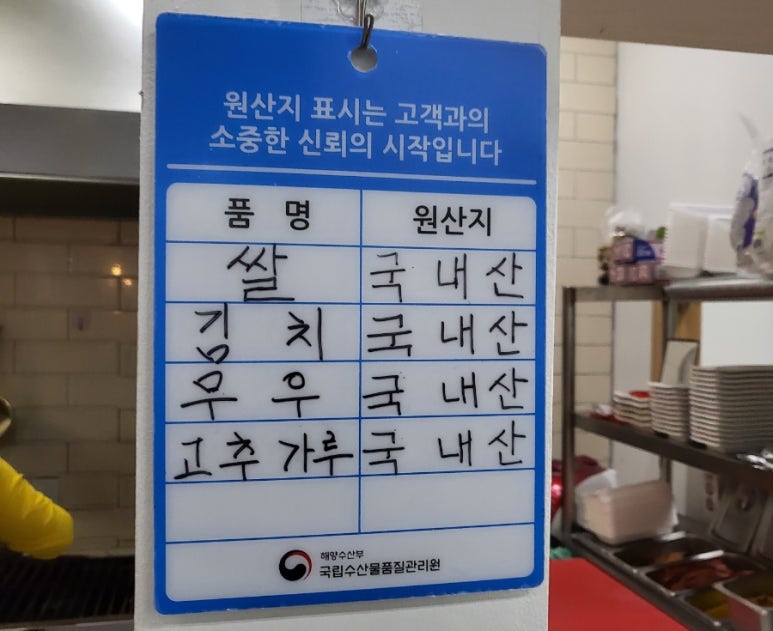 원산지 표시는 고객과의
소중한 신뢰의 시작입니다
품 명 원산지
쌀 국내산
김치 국내산
무우 국내산
고추가루 국내산
해양수산부
국립수산물품질관리원